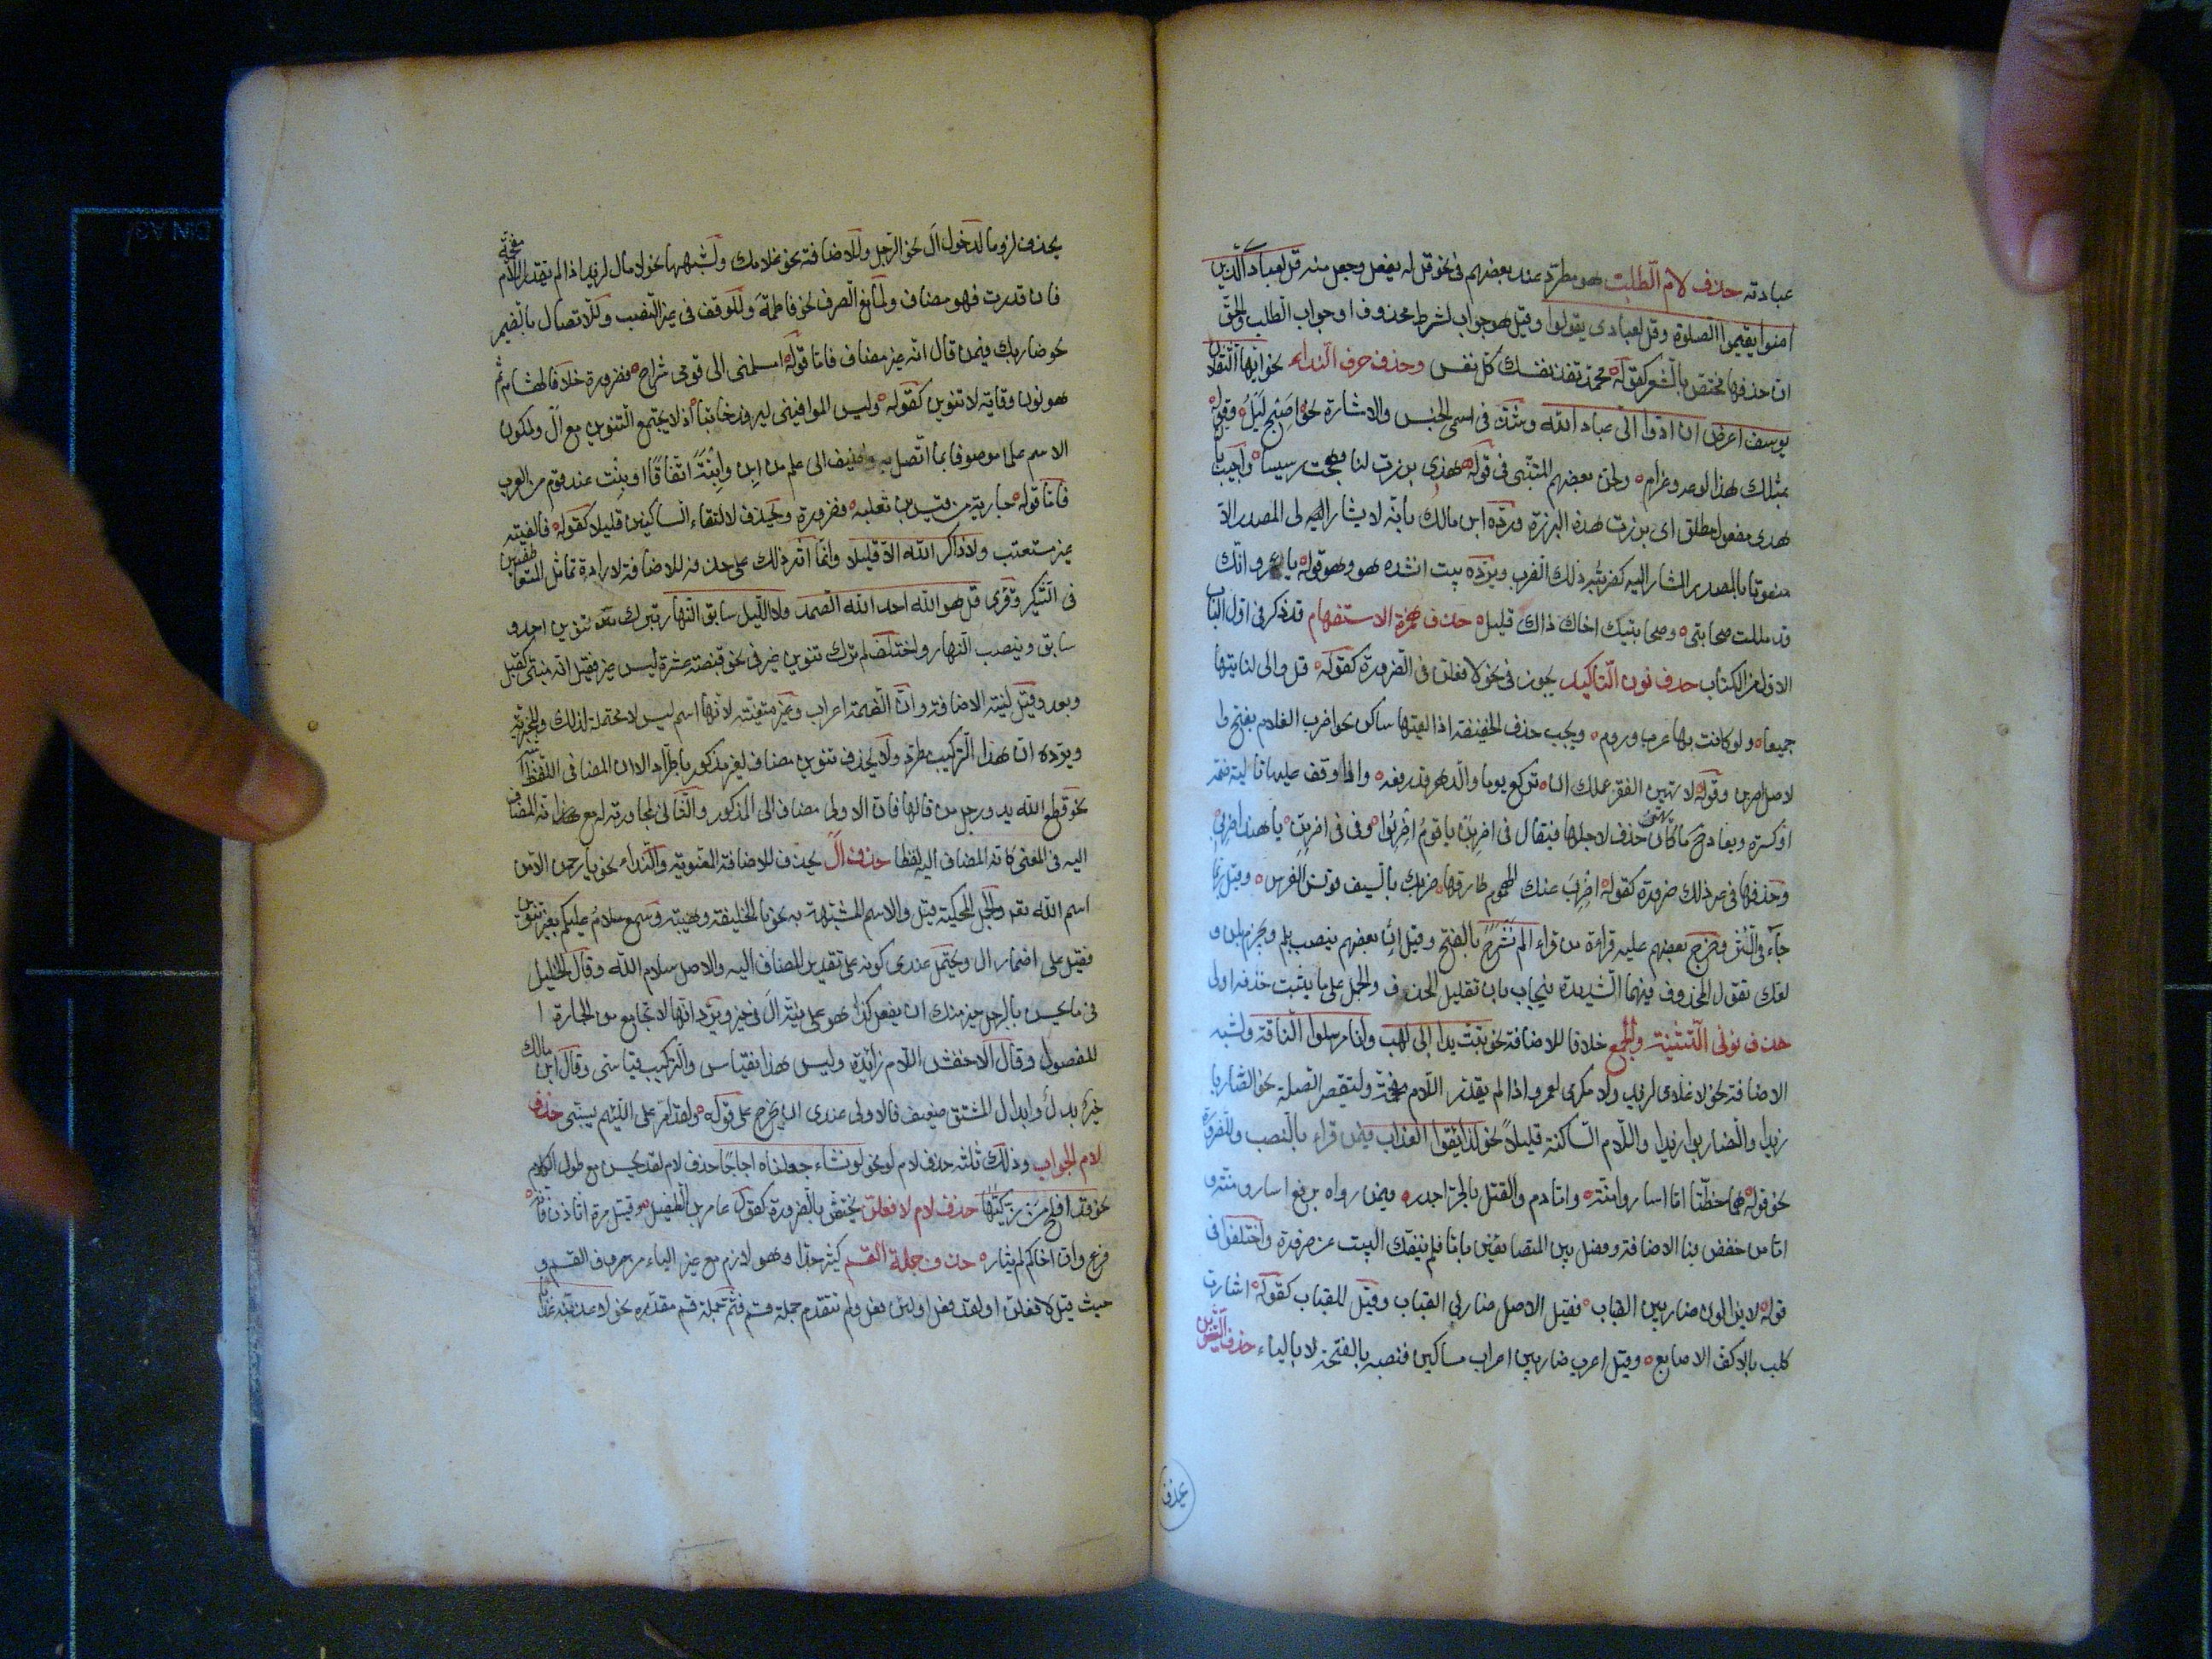 عبادته حذف لام الطلب هو مطرد عند بعضهم فى نحو قل له يفعل وجعل منه قل لعبادى الذين
امنوا يقيموا الصلوة وقل لعبادى يقولوا وقيل هو جواب لشرط محذوف او جواب الطلب والحق
ان حذفها مختص بالشعر كقوله محمد تفد نفسك كل نفس وحذف حرف النداء نحو ايها الثقلان
يوسف اعرض ان ادوا الى عباد الله وشذ فى اسمى الجنس والاشارة نحو اصبح ليل وقوله
بمثلك هذا لوعة وغرام ولحن بعضهم المتنبى فى قوله هذى برزت لنا فهجت رسيسا واجيب بان
هذى مفعول مطلق اى برزت هذه البرزة ورده ابن مالك بأنه لا يشار اليه لى المصدر الا
منعوتا بالمصدر المشار اليه كضربته ذلك الضرب ويرده بيت انشده هو وهو قوله يا عمرو انك
قد مللت صحابتى وصحابتيك اخاك ذاك قليل حذف همزة الاستفهام قد ذكر فى اول الباب
الاول من الكتاب حذف نون التاكيد يجوز فى نحو لافعلن فى الضرورة كقوله قل والى لنايتها
جميعا ولو كانت بها عرب وروم ويجب حذف الخفيفة اذا لقيها ساكن نحو اضرب الغلام بفتح وا
لاصل اضربن وقوله لا تهين الفقير علك ان تركع يوما والدهر قد رفعه واذا وقف عليها تالية ضمة
او كسرة ويعاد ح ما كان حذف لاجلها فيقال فى اضربن يا قوم اضربوا وفى فى اضربن يا هند اضربى
وحذفها فى غير ذلك ضرورة كقوله اضرب عنك الهموم طارقها ضربك بالسيف قونس الفرس وقيل ربما
جاء فى النثر وخرج بعضهم عليه قراءة من قراء الم نشرح بالفتح وقيل ان بعضهم ينصب بلم ويجزم بلن و
لعلك تقول المحذوف فيهما الشديدة فيجاب بان تقليل الحذف والحمل على ما يثبت حذفه اولى
حذف نونى التثنية والجمع خلافا للاضافة نحو تبت يدا ابى لهب وانا مرسلوا الناقة ولشبه
الاضافة نحو لا غلامى لزيد ولا مكرمى لعمرو اذا لم يقدر اللام مقحمة ولتقصير الصلة نحو الضاربا
زيدا والضاربوا زيدا واللام الساكنة قليلا نحو لذائقوا العذاب فيمن قراء بالنصب وللضرورة
نحو قوله هما خطتا اما اسار ومنة واما دم والقتل بالحر اجدر فيمن رواه برفع اسار ومنة و
اما من خفض فبالاضافة وفصل بين المتضايفين باما فلم ينفك البيت عن ضرورة واختلف فى
قوله لا يزالون ضاربين القباب فقيل الاصل ضاربى القباب وقيل للقباب كقوله اشارت
كليب بالاكف الاصابع وقيل اعرب ضاربين اعراب مساكين فنصبه بالفتحة لا بالياء حذف التنوين
يحذف
يحذف لزوما لدخول ال نحو الرجل وللاضافة نحو غلامك ولشبهها نحو لا مال لزيد اذا لم يقدر اللام مقحمة
فان قدرت فهو مضاف ولمانع الصرف نحو فاطمة وللوقف فى غير النصب وللاتصال بالضمير
نحو ضاربك فيمن قال انه غير مضاف فاما قوله اسلمنى الى قومى شراح فضرورة خلافا لهشام ثم
هو نون وقاية لا تنوين كقوله وليس الموافينى ليرفد خائبا اذ لا يجتمع التنوين مع ال ولكون
الاسم علما موصوفا بما اتصل به واضيف الى علم من ابن وابنة اتفاقا او بنت عند قوم من العرب
فاما قوله جارية من قيس بن ثعلبه فضرورة ويحذف لالتقاء الساكنين قليلا كقوله فالفيته
غير مستعتب ولا ذاكر الله الا قليلا وانما اثر ذلك على حذفه للاضافة لارادة تماثل المتعاطفين
فى التنكير وقرى قل هو الله احد الله الصمد ولا الليل سابق النهار بترك تنوين احد و
سابق وبنصب النهار واختلف لم ترك تنوين غير فى نحو قبضت عشرة ليس غير فقيل انه مبنى كقبل
وبعد وقيل لنية الاضافة وان الضمة اعراب وغير متعينة لانها اسم ليس لا محتملة لذلك والخبرية
ويرده ان هذا التركيب مطرد ولا يحذف تنوين مضاف لغير مذكور باطراد الا ان المضاف اللفظ
نحو قطع الله يد ورجل من قالها فان الاول مضاف الى المذكور والثانى لمجاورته له مع هذا انه المضاف
اليه فى المعنى كانه المضاف اليه لفظا حذف ال يحذف للاضافة المعنوية والنداء نحو يا رحمن الا من
اسم الله تعالى والجمل المحكية قيل والاسم المشبه به نحو يا الخليفة وهيبة وسمع سلام عليكم بغير تنوين
فقيل على اضمار ال ويحتمل عندى كونه على تقدير المضاف اليه والاصل سلام الله وقال الخليل
فى ما يحسن بالرجل خير منك ان يفعل كذا هو على نية ال فى خير ويرده انها لا تجامع من الجارة
للمفصول وقال الاخفش اللام زائدة وليس هذا بقياس والتركيب قياسى وقال ابن مالك
خير بدل وابدال المشتق ضعيف فالاولى عندى ان يخرج على قوله ولقد امر على اللئيم يسبنى حذف
لام الجواب وذلك ثلثة حذف لام لو نحو لو نشاء جعلناه اجاجا حذف لام لقد يحسن مع طول الكلام
نحو قد افلح من زكيها حذف لام لافعلن يختص بالضرورة كقول عامر بن الطفيل وقتيل مرة اثأرن فانه
فرع وان اخاكم لم يثار حذف جملة القسم كثير جدا وهو لازم مع غير الباء من حروف القسم و
حيث قيل لافعلن او لقد فعل او لئن فعل ولم تتقدم جملة قسم فثم جملة قسم مقدره نحو لاعذبنه عذابا